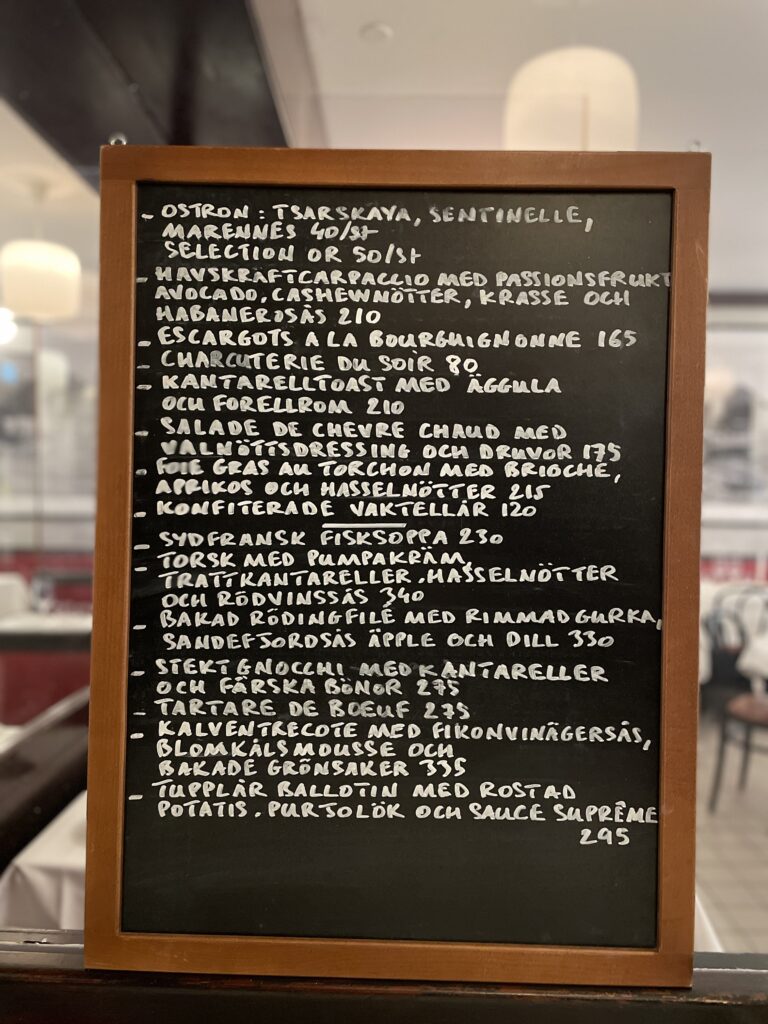 - OSTRON: TSARSKAYA, SENTINELLE,
MARENNES 40/St
SELECTION OR 50/St
- HAVSKRÄFTCARPACCIO MED PASSIONSFRUKT
AVOCADO, CASHEWNÖTTER, KRASSE OCH
HABANEROSÅS 210
- ESCARGOTS A LA BOURGUIGNONNE 165
- CHARCUTERIE DU SOIR 80
- KANTARELLTOAST MED ÄGGULA
OCH FORELLROM 210
- SALADE DE CHEVRE CHAUD MED
VALNÖTTSDRESSING OCH DRUVOR 175
- FOIE GRAS AU TORCHON MED BRIOCHE,
APRIKOS OCH HASSELNÖTTER 215
- KONFITERADE VAKTELLÅR 120
- SYDFRANSK FISKSOPPA 230
- TORSK MED PUMPAKRÄM,
TRATTKANTARELLER, HASSELNÖTTER
OCH RÖDVINSSÅS 340
- BAKAD RÖDINGFILÉ MED RIMMAD GURKA,
SANDEFJORDSÅS ÄPPLE OCH DILL 330
- STEKT GNOCCHI MED KANTARELLER
OCH FÄRSKA BÖNOR 275
- TARTARE DE BOEUF 275
- KALVENTRECOTE MED FIKONVINÄGERSÅS,
BLOMKÅLSMOUSSE OCH
BAKADE GRÖNSAKER 335
- TUPPLÅR BALLOTIN MED ROSTAD
POTATIS, PURJOLÖK OCH SAUCE SUPRÊME
295